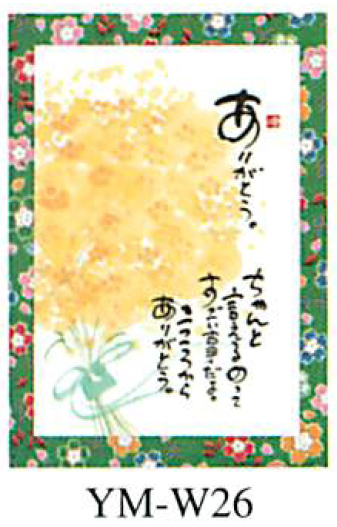 ありがとう。
ちゃんと
言えるのって
すごい事だよね
こころから
ありがとう。
YM-W26